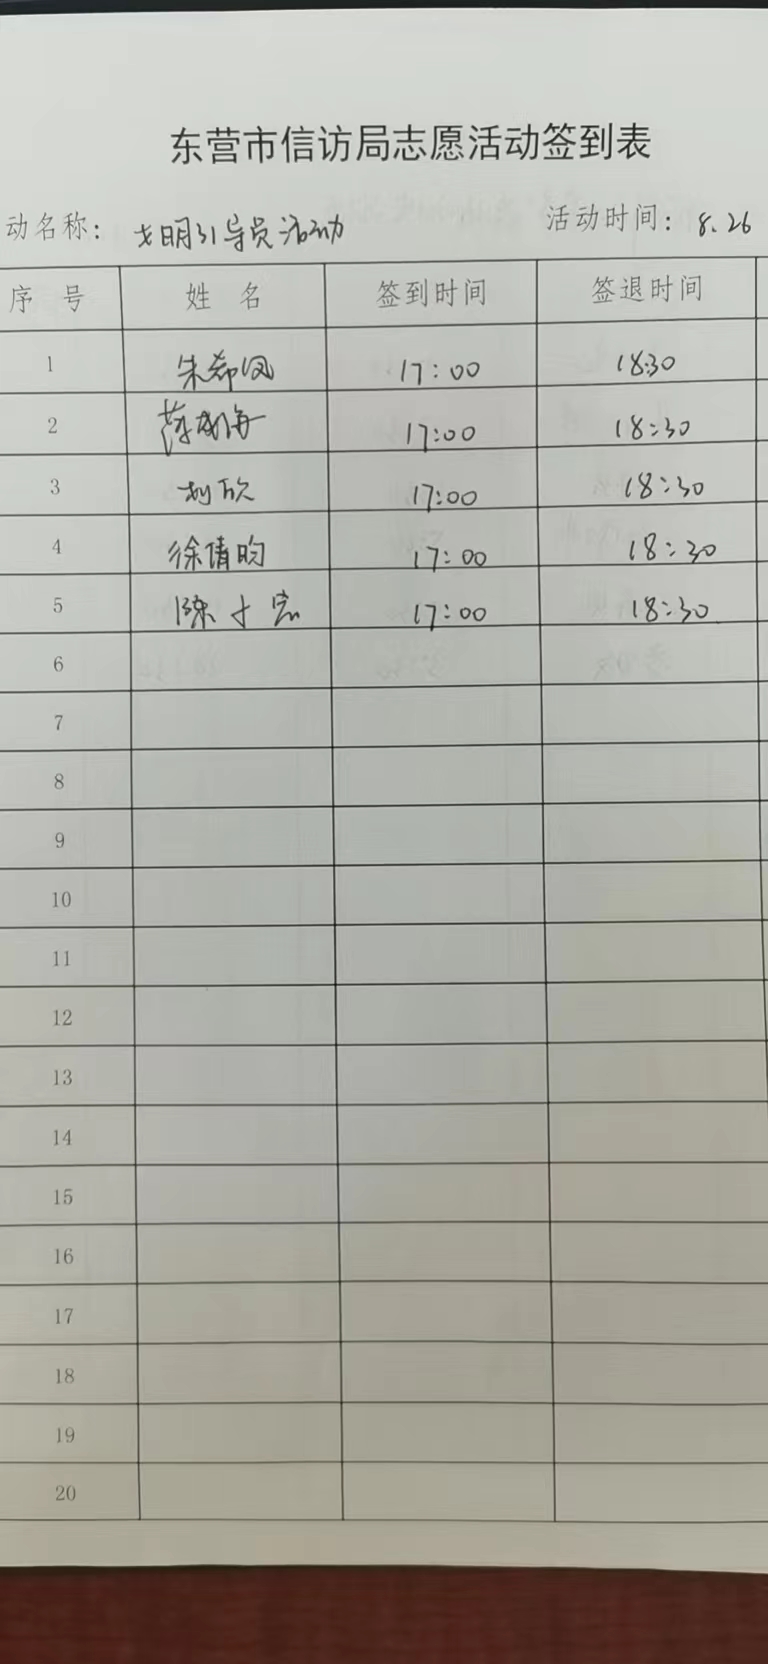 东营市信访局志愿活动签到表
动名称: 文明引导员活动 活动时间: 8.26
序 号 姓 名 签到时间 签退时间
1 朱希凤 17:00 18:30
2 17:00 18:30
3 刘欣 17:00 18:30
4 徐倩昀 17:00 18:30
5 陈 17:00 18:30
6
7
8
9
10
11
12
13
14
15
16
17
18
19
20